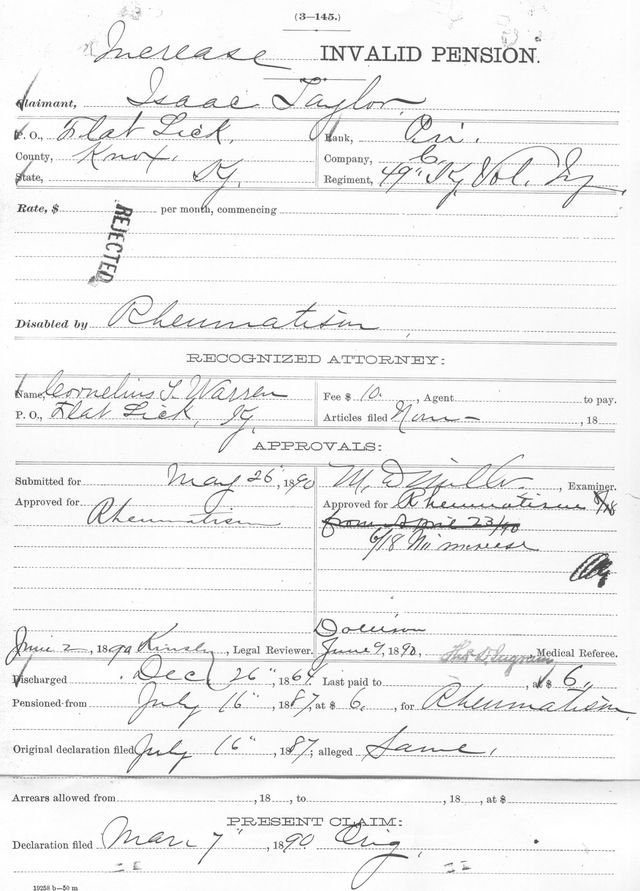 (3—145.)
Increase INVALID PENSION.
Claimant, Isaac Taylor
P. O., Flat Lick,
Rank, Pri.
County, Knox,
Company, C,
State, Ky.
Regiment, 49" Ky Vol. Inf
Rate, $ per month, commencing
REJECTED
Disabled by Rheumatism
RECOGNIZED ATTORNEY:
Name, Cornelius T. Warren
Fee $ 10. , Agent to pay.
P. O., Flat Lick, Ky
Articles filed None , 18
APPROVALS:
Submitted for May 26", 1890
M. D. Miller , Examiner.
Approved for Rheumatism
Approved for Rheumatism 8/18
from April 23/90
6/18 No increase
June 2, 1890 Kinsly, Legal Reviewer.
Dollison
June 9, 1890, Thos D. Ingram Medical Referee.
Discharged Dec 26", 1864
Last paid to , at $ 6,
Pensioned from July 16", 1887, at $ 6, for Rheumatism,
Original declaration filed July 16", 1887; alleged Same.
Arrears allowed from , 18 , to , 18 , at $
PRESENT CLAIM:
Declaration filed Mar. 7", 1890 Orig.
19258 b—50 m